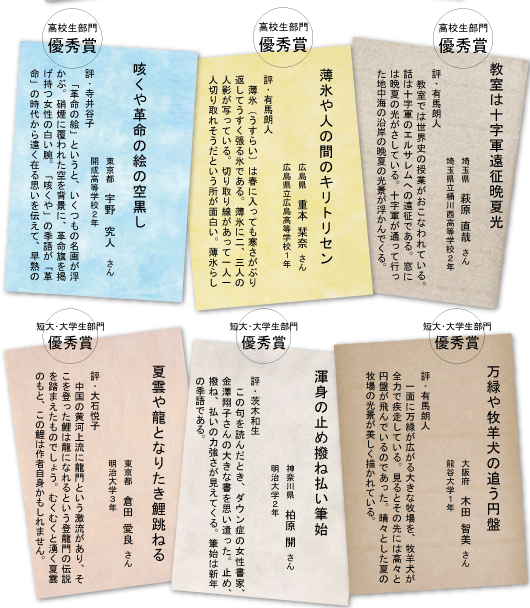 高校生部門
優秀賞
教室は十字軍遠征晩夏光
埼玉県 萩原 直哉 さん
埼玉県立桶川西高等学校2年
評・有馬朗人
教室では世界史の授業がおこなわれている。
話は十字軍のエルサレムへの遠征である。窓に
は晩夏の光がさしている。十字軍が通って行っ
た地中海の沿岸の晩夏の光景が浮かんでくる。
高校生部門
優秀賞
薄氷や人の間のキリトリセン
広島県 重本 栞奈 さん
広島県立広島高等学校1年
評・有馬朗人
薄氷（うすらい）は春に入っても寒さがぶり
返してうすく張る氷である。薄氷に二、三人の
人影が写っている。切り取り線があって一人一
人切り取れそうだという所が面白い。薄氷らし
高校生部門
優秀賞
咳くや革命の絵の空黒し
東京都 宇野 究人 さん
開成高等学校2年
評・寺井谷子
「革命の絵」というと、いくつもの名画が浮
かぶ。硝煙に覆われた空を背景に、革命旗を掲
げ持つ女性の白い腕。「咳くや」の季語が「革
命」の時代から遠く在る思いを伝えて、早熟の
短大・大学生部門
優秀賞
万緑や牧羊犬の追う円盤
大阪府 木田 智美 さん
龍谷大学1年
評・有馬朗人
一面に万緑が広がる大きな牧場を、牧羊犬が
全力で疾走している。見るとその先には高々と
円盤が飛んでいるのであった。晴々とした夏の
牧場の光景が美しく描かれている。
短大・大学生部門
優秀賞
渾身の止め撥ね払い筆始
神奈川県 柏原 開 さん
明治大学2年
評・茨木和生
この句を読んだとき、ダウン症の女性書家、
金澤翔子さんの大きな書を思い遣った。止め、
撥ね、払いの力強さが見えてくる。筆始は新年
の季語である。
短大・大学生部門
優秀賞
夏雲や龍となりたき鯉跳ねる
東京都 倉田 愛良 さん
明治大学3年
評・大石悦子
中国の黄河上流に龍門という激流があり、そ
こを登った鯉は龍になれるという登龍門の伝説
を踏まえたものでしょう。むくむくと湧く夏雲
のもと、この鯉は作者自身かもしれません。